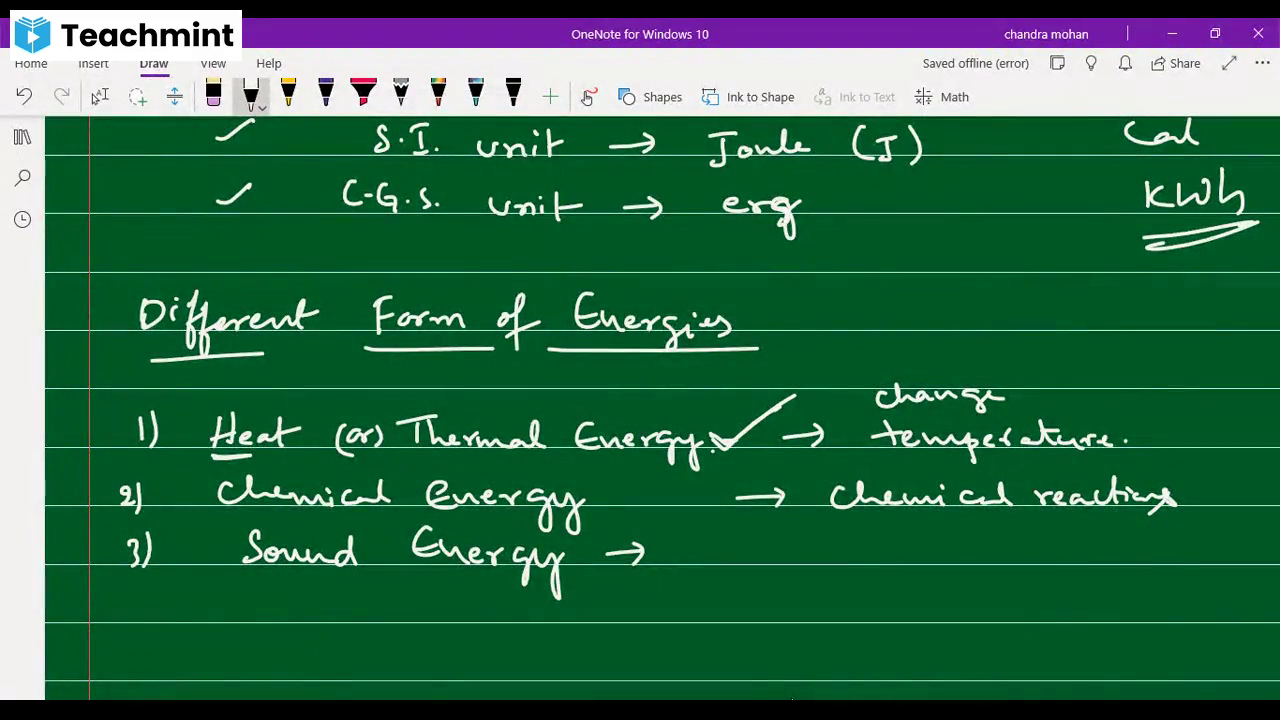 Teachmint
OneNote for Windows 10
chandra mohan
Home Insert Draw View Help
Saved offline (error)
Share
Shapes
Ink to Shape
Ink to Text
Math
S.I. unit → Joule (J)
Cal
C-G.S. unit → erg
KWh
Different Form of Energies
change
1) Heat (or) Thermal Energy. → temperature.
2) Chemical Energy → Chemical reactions
3) Sound Energy →